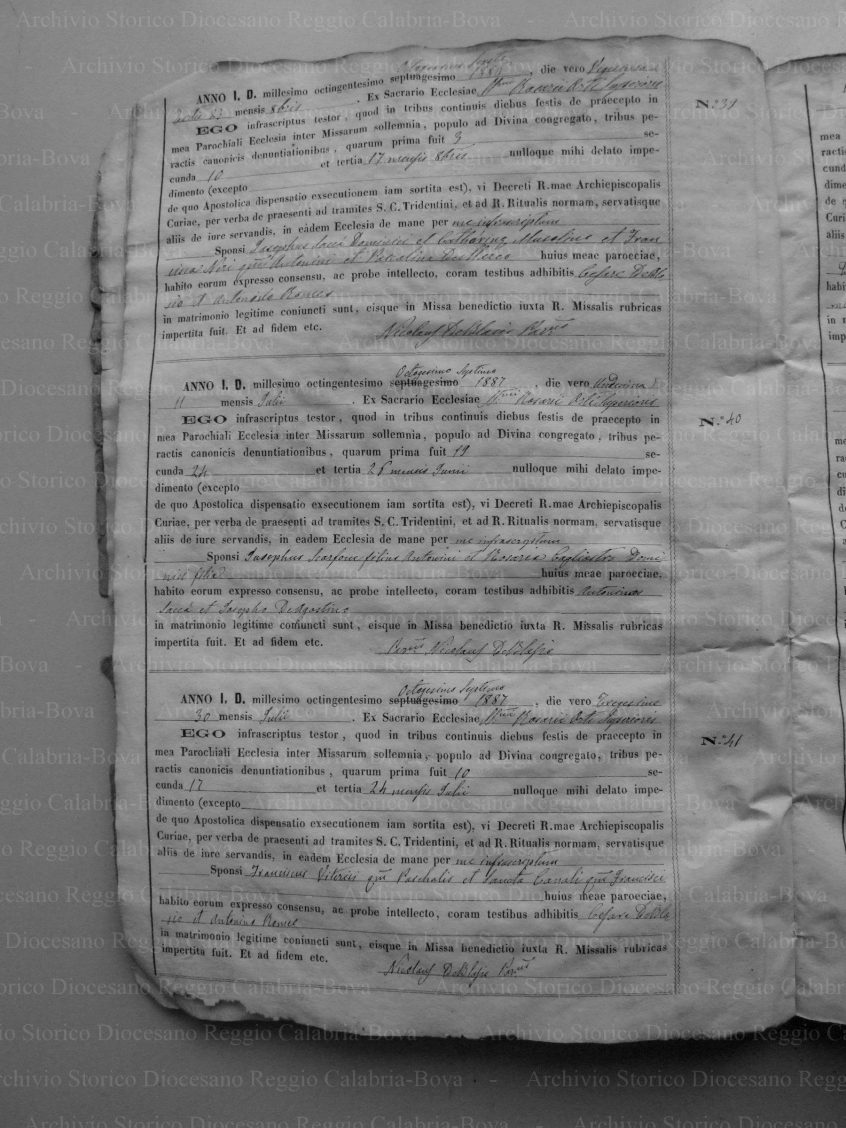 Octogesimo Sexto
ANNO I. D. millesimo octingentesimo septuagesimo 1886, die vero Vigesima
mensis 8bris. Ex Sacrario Ecclesiae Rosarii Orti Superioris
EGO infrascriptus testor, quod in tribus continuis diebus festis de praecepto in
mea Parochiali Ecclesia inter Missarum sollemnia, populo ad Divina congregato, tribus pe-
ractis canonicis denuntiationibus, quarum prima fuit 3 se-
cunda 10 et tertia 17 mensis 8bris nulloque mihi delato impe-
dimento (excepto
de quo Apostolica dispensatio exsecutionem iam sortita est), vi Decreti R.mae Archiepiscopalis
Curiae, per verba de praesenti ad tramites S. C. Tridentini, et ad R. Ritualis normam, servatisque
aliis de iure servandis, in eadem Ecclesia de mane per me infrascriptum
Sponsi Iosephus Saccà Dominici et Catharina Musolino et Fran
Antonini et huius meae parocciae,
habito eorum expresso consensu, ac probe intellecto, coram testibus adhibitis Cesare DeBla
sio et Antonio Romeo
in matrimonio legitime coniuncti sunt, eisque in Missa benedictio iuxta R. Missalis rubricas
impertita fuit. Et ad fidem etc.
Nicolaus DeBlasio Parcus
N.º 39
Octogesimo Septimo
ANNO I. D. millesimo octingentesimo septuagesimo 1887, die vero Undecima
11 mensis Iulii. Ex Sacrario Ecclesiae Rosarii Orti Superioris
EGO infrascriptus testor, quod in tribus continuis diebus festis de praecepto in
mea Parochiali Ecclesia inter Missarum sollemnia, populo ad Divina congregato, tribus pe-
ractis canonicis denuntiationibus, quarum prima fuit 19 se-
cunda 24 et tertia 26 mensis Iunii nulloque mihi delato impe-
dimento (excepto
de quo Apostolica dispensatio exsecutionem iam sortita est), vi Decreti R.mae Archiepiscopalis
Curiae, per verba de praesenti ad tramites S. C. Tridentini, et ad R. Ritualis normam, servatisque
aliis de iure servandis, in eadem Ecclesia de mane per me infrascriptum
Sponsi Iosephus Scarfone filius Antonini et Rosaria Cogliastro Domi
nici filia huius meae parocciae,
habito eorum expresso consensu, ac probe intellecto, coram testibus adhibitis Antonino
Saccà et Iosepho DeAgostino
in matrimonio legitime coniuncti sunt, eisque in Missa benedictio iuxta R. Missalis rubricas
impertita fuit. Et ad fidem etc.
Parcus Nicolaus DeBlasio
N.º 40
Octogesimo Septimo
ANNO I. D. millesimo octingentesimo septuagesimo 1887, die vero Trigesima
30 mensis Iulii. Ex Sacrario Ecclesiae Rosarii Orti Superioris
EGO infrascriptus testor, quod in tribus continuis diebus festis de praecepto in
mea Parochiali Ecclesia inter Missarum sollemnia, populo ad Divina congregato, tribus pe-
ractis canonicis denuntiationibus, quarum prima fuit 10 se-
cunda 17 et tertia 24 mensis Iulii nulloque mihi delato impe-
dimento (excepto
de quo Apostolica dispensatio exsecutionem iam sortita est), vi Decreti R.mae Archiepiscopalis
Curiae, per verba de praesenti ad tramites S. C. Tridentini, et ad R. Ritualis normam, servatisque
aliis de iure servandis, in eadem Ecclesia de mane per me infrascriptum
Sponsi Franciscus Viteresi qm Paschalis et Sancta Canali qm Francisci
huius meae parocciae,
habito eorum expresso consensu, ac probe intellecto, coram testibus adhibitis Cesare DeBla
sio et Antonino Romeo
in matrimonio legitime coniuncti sunt, eisque in Missa benedictio iuxta R. Missalis rubricas
impertita fuit. Et ad fidem etc.
Nicolaus DeBlasio Parcus
N.º 41
Archivio Storico Diocesano Reggio Calabria-Bova